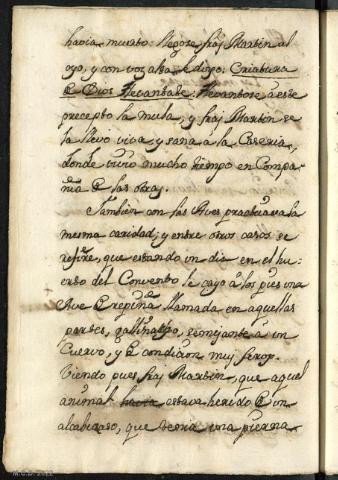 havia muerto: llegose fraj Martin al
oyo, y con voz alta le dijo: Criatura
de Dios levantate: levantose à este
precepto la mula; y fraj Martin se
la llevò viva, y sana a la Caseria,
donde vivio mucho tiempo en Compa-
ñia de las otras.
Tambien con las Aves practicava la
mesma caridad; y entre otros casos se
refiere, que estando un dia en el hu-
erto del Convento le cayò à los pies una
Ave de rapiña llamada en aquellas
partes, gallinaço, semejante à un
Cuervo, y de condicion muy feroz.
Viendo pues fraj Martin, que aquel
animal havia estava herido de un
alcabuzaso, que tenia una pierna